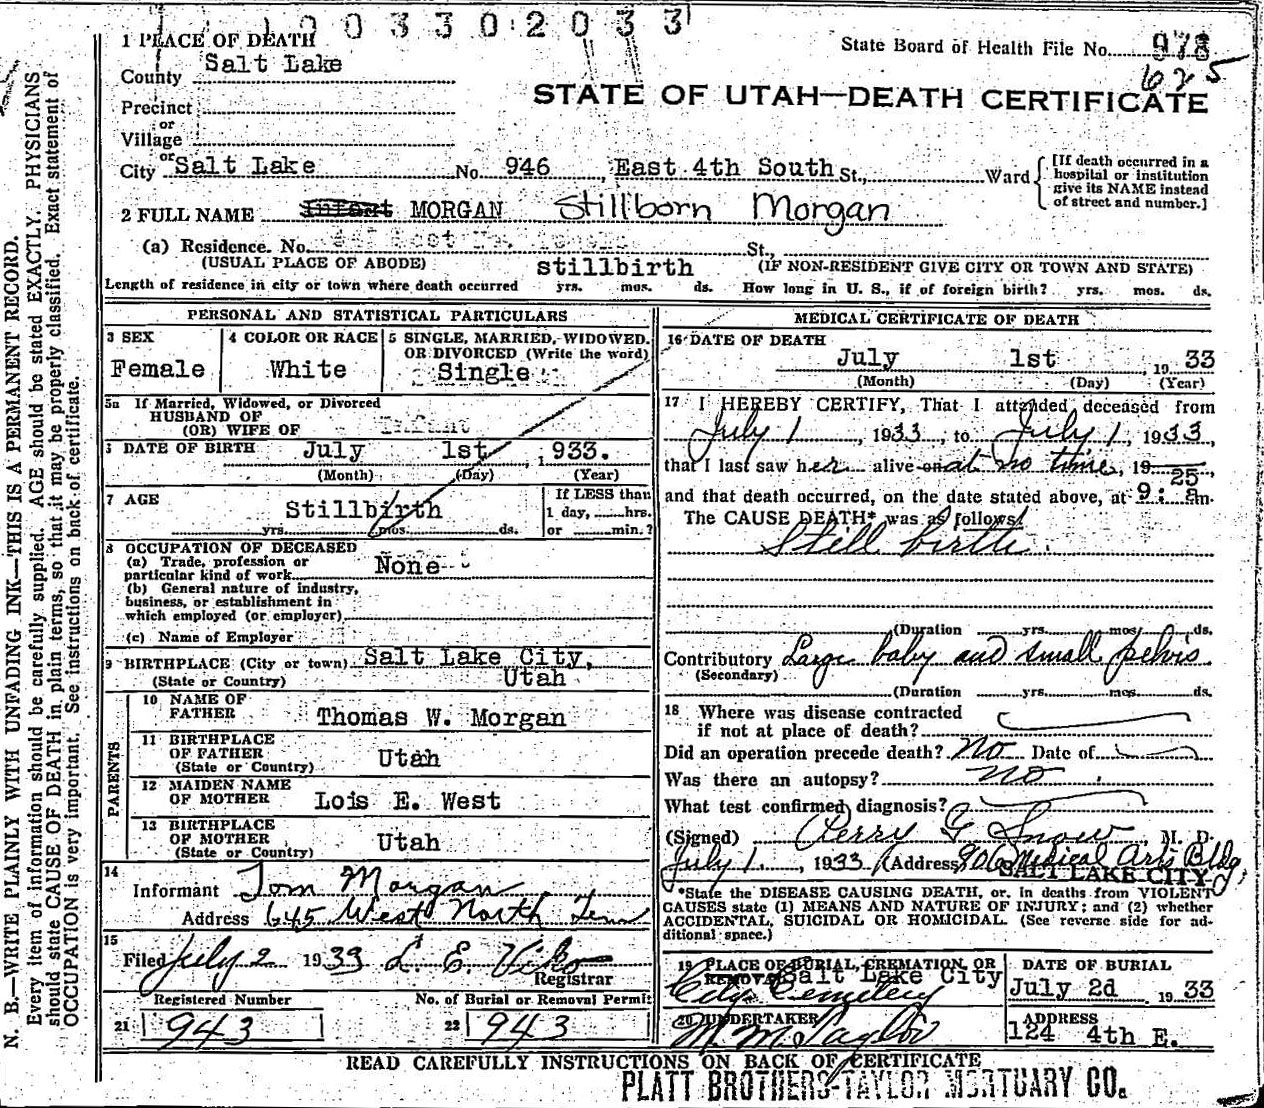 1 0 0 3 3 0 2 0 3 3
1 PLACE OF DEATH
State Board of Health File No. 978
625
County Salt Lake
STATE OF UTAH—DEATH CERTIFICATE
Precinct
or
Village
or
City Salt Lake No. 946 East 4th South St., Ward
[If death occurred in a hospital or institution give its NAME instead of street and number.]
2 FULL NAME Infant MORGAN Stillborn Morgan
(a) Residence. No. St.,
(USUAL PLACE OF ABODE) stillbirth (IF NON-RESIDENT GIVE CITY OR TOWN AND STATE)
Length of residence in city or town where death occurred yrs. mos. ds. How long in U. S., if of foreign birth? yrs. mos. ds.
PERSONAL AND STATISTICAL PARTICULARS
3 SEX
Female
4 COLOR OR RACE
White
5 SINGLE, MARRIED, WIDOWED. OR DIVORCED (Write the word)
Single
5a If Married, Widowed, or Divorced
HUSBAND OF
(OR) WIFE OF Infant
6 DATE OF BIRTH July 1st, 1933.
(Month) (Day) (Year)
7 AGE
Stillbirth
yrs. mos. ds.
If LESS than
1 day, hrs.
or min.?
8 OCCUPATION OF DECEASED
(a) Trade, profession or
particular kind of work None
(b) General nature of industry,
business, or establishment in
which employed (or employer)
(c) Name of Employer
9 BIRTHPLACE (City or town) Salt Lake City,
(State or Country) Utah
PARENTS
10 NAME OF
FATHER Thomas W. Morgan
11 BIRTHPLACE
OF FATHER Utah
(State or Country)
12 MAIDEN NAME
OF MOTHER Lois E. West
13 BIRTHPLACE
OF MOTHER Utah
(State or Country)
14
Informant Tom Morgan
Address 645 West North Tem
15
Filed July 2 1933 L. E. Viko
Registrar
Registered Number
21 943
No. of Burial or Removal Permit
22 943
MEDICAL CERTIFICATE OF DEATH
16 DATE OF DEATH
July 1st 1933
(Month) (Day) (Year)
17 I HEREBY CERTIFY, That I attended deceased from
July 1, 1933, to July 1, 1933,
that I last saw her alive on at no time, 19
and that death occurred, on the date stated above, at 9:25 am.
The CAUSE DEATH* was as follows:
Still birth.
(Duration yrs. mos. ds.
Contributory Large baby and small pelvis
(Secondary)
(Duration yrs. mos. ds.
18 Where was disease contracted
if not at place of death?
Did an operation precede death? No Date of
Was there an autopsy? no
What test confirmed diagnosis?
(Signed) Perry G Snow M. D.
July 1, 1933 (Address 906 Medical Arts Bldg
SALT LAKE CITY
*State the DISEASE CAUSING DEATH, or, in deaths from VIOLENT
CAUSES state (1) MEANS AND NATURE OF INJURY; and (2) whether
ACCIDENTAL, SUICIDAL OR HOMICIDAL. (See reverse side for ad-
ditional space.)
19 PLACE OF BURIAL, CREMATION, OR
REMOVAL Salt Lake City
City Cemetery
DATE OF BURIAL
July 2d 1933
20 UNDERTAKER
ADDRESS
124 4th E.
READ CAREFULLY INSTRUCTIONS ON BACK OF CERTIFICATE
PLATT BROTHERS-TAYLOR MORTUARY CO.
N. B.—WRITE PLAINLY WITH UNFADING INK—THIS IS A PERMANENT RECORD.
Every item of information should be carefully supplied. AGE should be stated EXACTLY. PHYSICIANS
should state CAUSE OF DEATH in plain terms, so that it may be properly classified. Exact statement of
OCCUPATION is very important. See instructions on back of certificate.